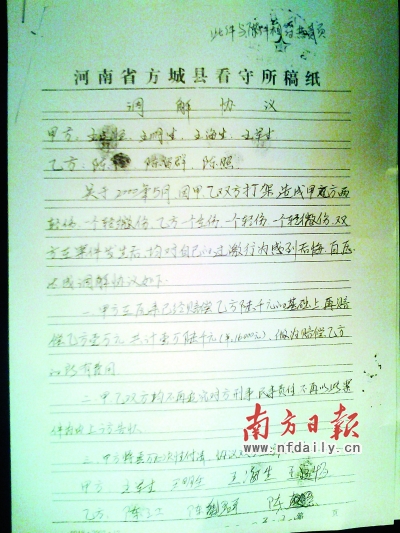 此件与原件
河南省方城县看守所稿纸
调解协议
甲方: 王明生、王海生、王军生
乙方: 陈 群、陈照
关于2000年5月因甲、乙双方打架造成甲方两
轻伤、一个轻微伤、乙方一个重伤、一个轻伤、一个轻微伤,双
方在案件发生后,均对自己的过激行为感到后悔,自愿
达成调解协议如下:
一、甲方在原来已经赔偿乙方陆千元的基础上再赔
偿乙方壹万元,共计壹万陆千元(¥16000元),做为赔偿乙方
的所有费用
二、甲乙双方均不再追究对方刑事、民事责任,不再以此案
件为由上访告状
三、甲方
甲方 王 生 王明生 王海生 王
乙方: 陈 陈 群 陈
南方日报
www.nfdaily.cn